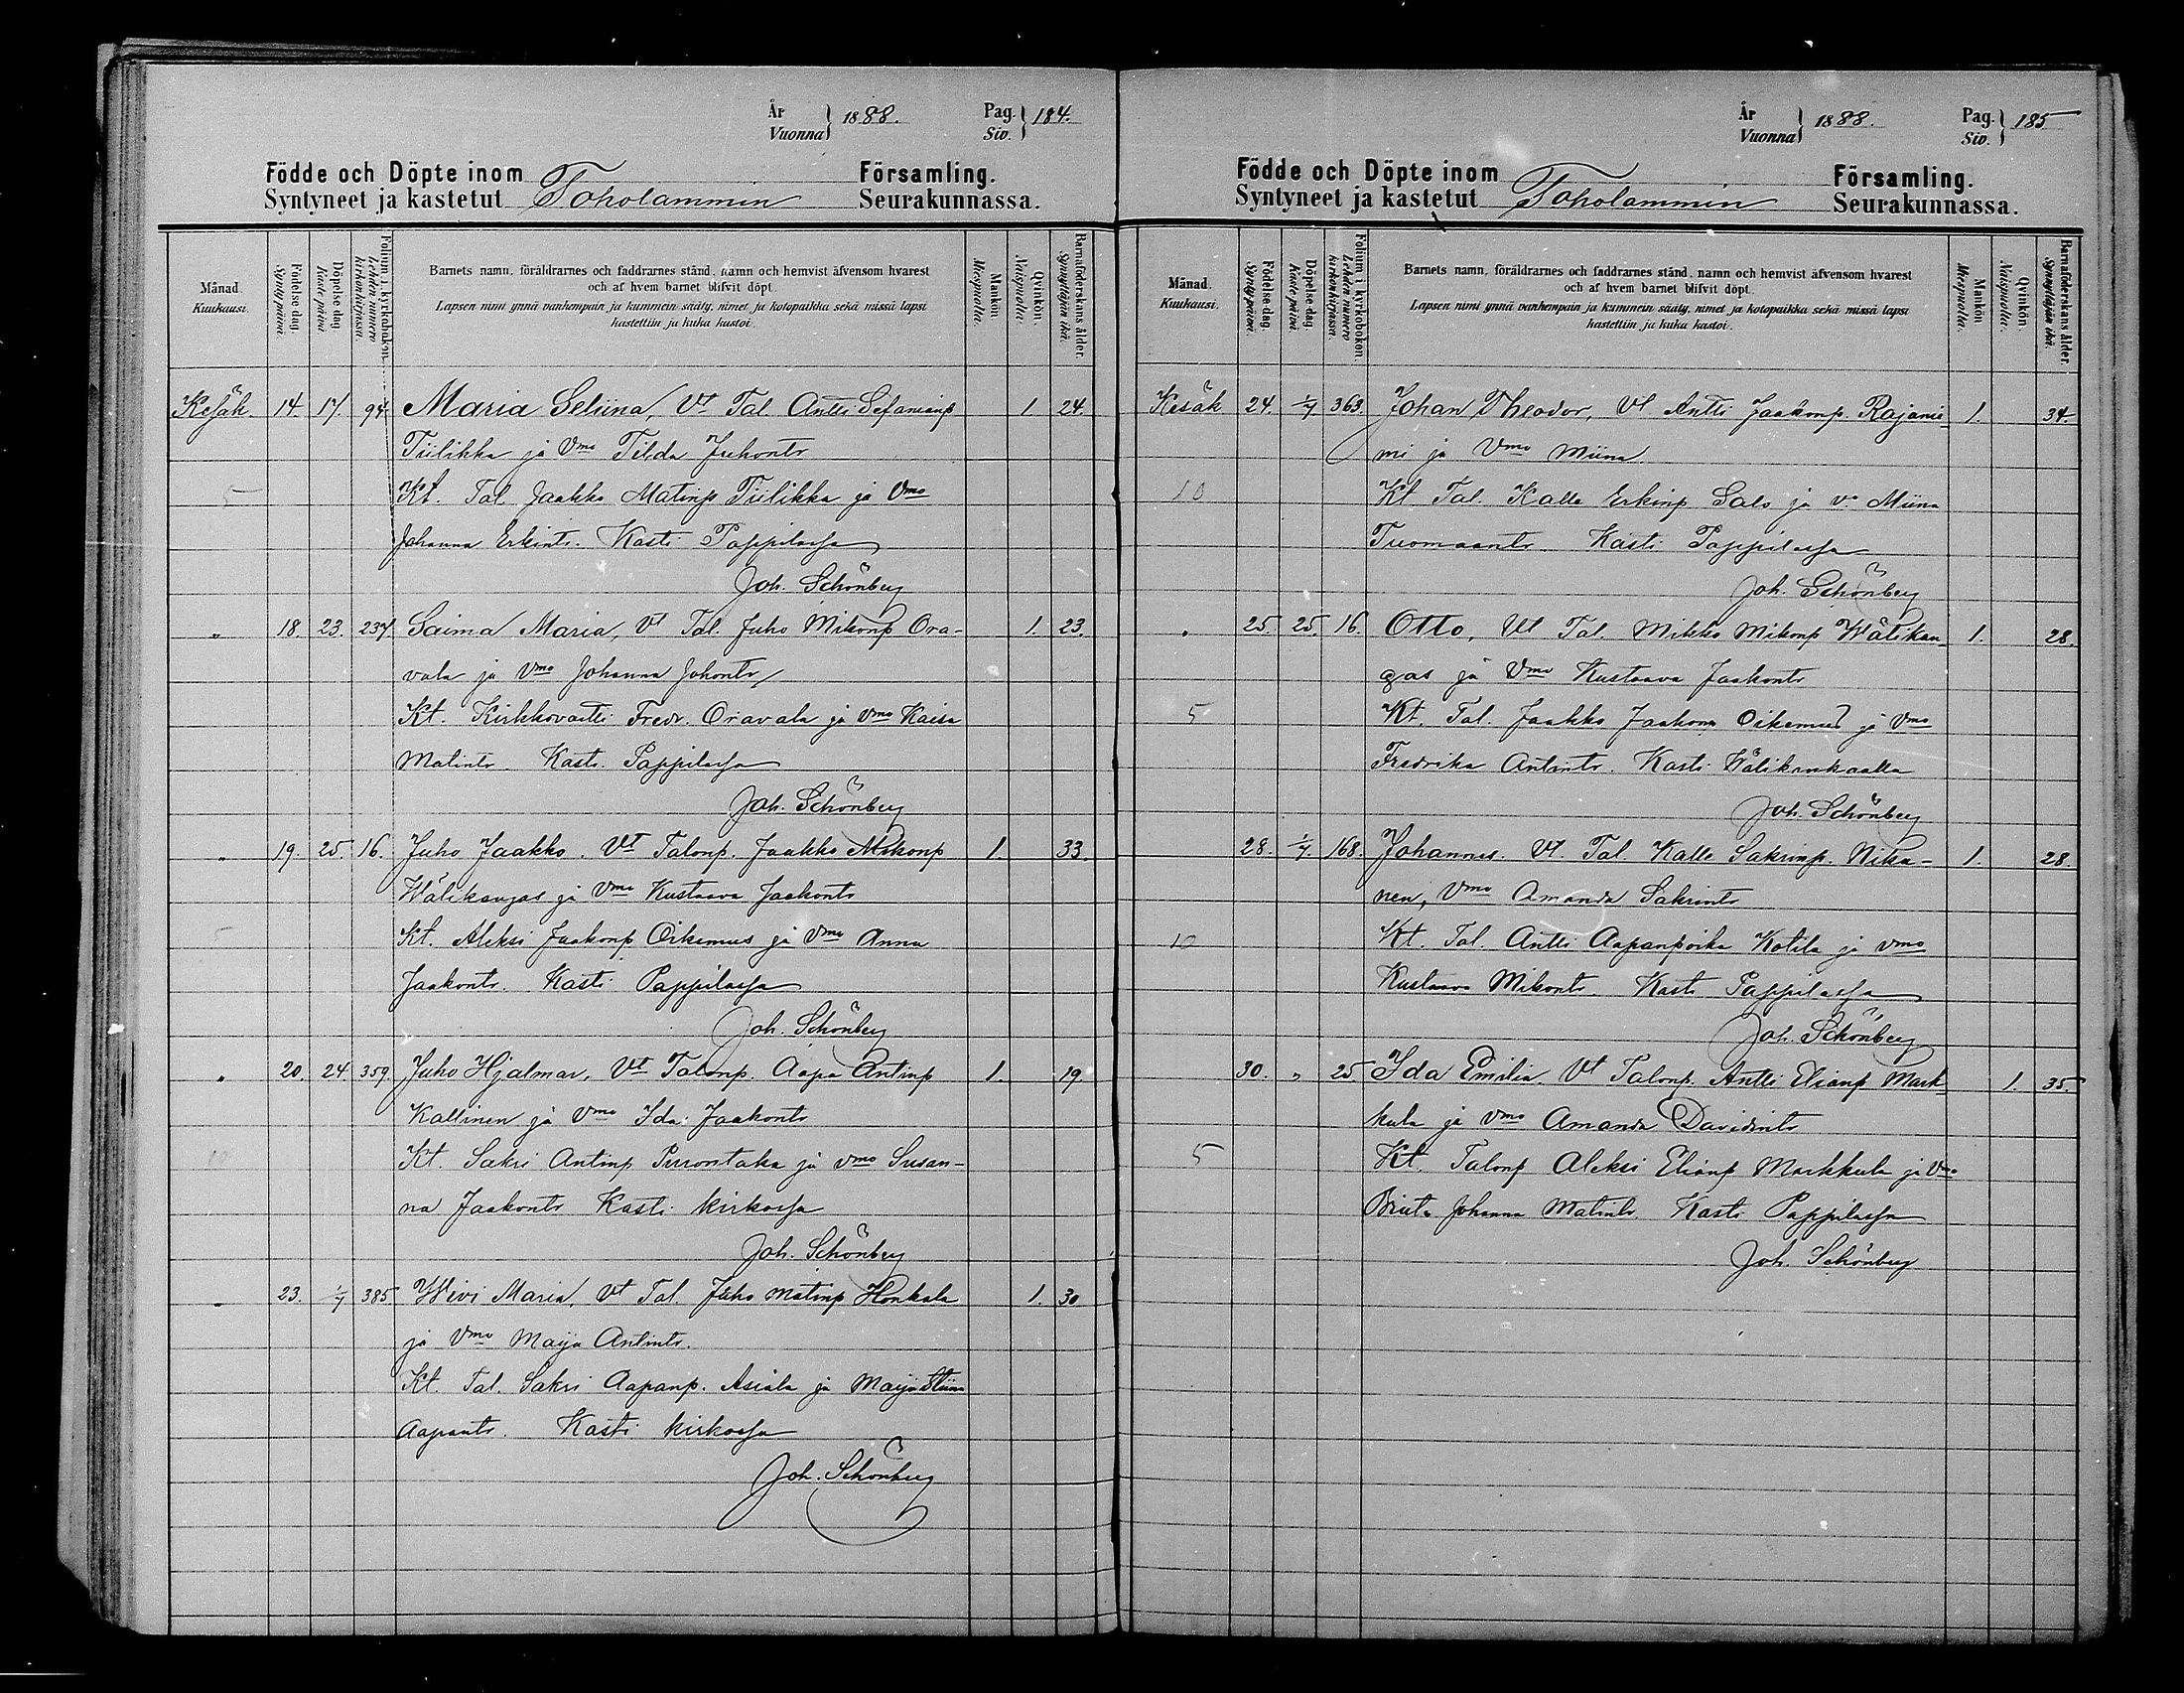 År
Vuonna } 1888. Pag.
Siv. } 184.
Födde och Döpte inom Församling.
Syntyneet ja kastetut Toholammin Seurakunnassa.
Månad. Kuukausi.
Födelsedag. Syntypäivä.
Döpelsedag. Kastepäivä.
Folium i kyrkoboken. Lehden numero kirkonkirjassa.
Barnets namn, föräldrarnes och faddrarnes stånd, namn och hemvist äfvensom hvarest
och af hvem barnet blifvit döpt.
Lapsen nimi ynnä vanhempain ja kummein sääty, nimet ja kotopaikka sekä missä lapsi
kastettiin ja kuka kastoi.
Mankön. Miespuolia.
Qvinkön. Naispuolia.
Barnaföderskans ålder. Synnyttäjän ikä.
Kesäk. 14. 17. 94. Maria Seliina, Vt Tal Antti Sefaninp 1 24.
Tiilikka ja Vmo Tilda Juhontr
5 Kt. Tal. Jaakko Matinp Tiilikka ja Vmo
Johanna Erkintr. Kasti Pappilassa
Joh. Schönberg
„ 18. 23. 237. Saima Maria, Vt Tal. Juho Mikonp Ora- 1. 23.
vala ja Vmo Johanna Johontr
Kt. Kirkkovartti Fredr. Oravala ja Vmo Kaisa
Matintr. Kasti Pappilassa
Joh. Schönberg
„ 19. 25. 16. Juho Jaakko. Vt Talonp. Jaakko Mikonp 1. 33.
Wälikangas ja Vmo Kustaava Jaakontr
5 Kt. Aleksi Jaakonp Oikemus ja Vmo Anna
Jaakontr. Kasti Pappilassa
Joh. Schönberg
„ 20. 24 359. Juho Hjalmar, Vt Talonp. Aapo Antinp 1. 19.
Kallinen ja Vmo Ida Jaakontr
10 Kt. Sakri Antinp Purontaka ja vmo Susan-
na Jaakontr Kasti kirkossa
Joh. Schönberg
„ 23. 1/7 385. Wivi Maria, Vt Tal. Juho Matinp Honkala 1. 30
ja Vmo Maija Antintr.
Kt. Tal. Sakri Aapanp. Asiala ja Maija Stiina
Aapantr. Kasti kirkossa
Joh. Schönberg
År
Vuonna } 1888. Pag.
Siv. } 185
Födde och Döpte inom Församling.
Syntyneet ja kastetut Toholammin Seurakunnassa.
Månad. Kuukausi.
Födelsedag. Syntypäivä.
Döpelsedag. Kastepäivä.
Folium i kyrkoboken. Lehden numero kirkonkirjassa.
Barnets namn, föräldrarnes och faddrarnes stånd, namn och hemvist äfvensom hvarest
och af hvem barnet blifvit döpt.
Lapsen nimi ynnä vanhempain ja kummein sääty, nimet ja kotopaikka sekä missä lapsi
kastettiin ja kuka kastoi.
Mankön. Miespuolia.
Qvinkön. Naispuolia.
Barnaföderskans ålder. Synnyttäjän ikä.
Kesäk 24. 1/7 363. Johan Theodor, Vt Antti Jaakonp. Rajanie- 1. 34.
mi ja Vmo Miina
10 Kt Tal. Kalle Erkinp Salo ja v. Miina
Tuomaantr Kasti Pappilassa
Joh. Schönberg
„ 25. 25. 16. Otto, Vt Tal. Mikko Mikonp Wälikan- 1. 28.
gas ja Vmo Kustaava Jaakontr
5 Kt. Tal. Jaakko Jaakonp Oikemus ja Vmo
Fredrika Antintr. Kasti Wälikankaalla
Joh. Schönberg
28. 1/7. 168. Johannes. Vt. Tal. Kalle Sakrinp. Nika- 1. 28.
nen, Vmo Amanda Sakrintr
10 Kt. Tal. Antti Aapanpoika Kotila ja vmo
Kustaava Mikontr. Kasti Pappilassa
Joh. Schönberg
30. „ 25. Ida Emilia. Vt Talonp. Antti Elianp Mark- 1. 35.
kula ja Vmo Amanda Davidintr
5 Kt. Talonp Aleksi Elianp Markkula ja Vmo
Briita Johanna Matintr. Kasti Pappilassa
Joh. Schönberg